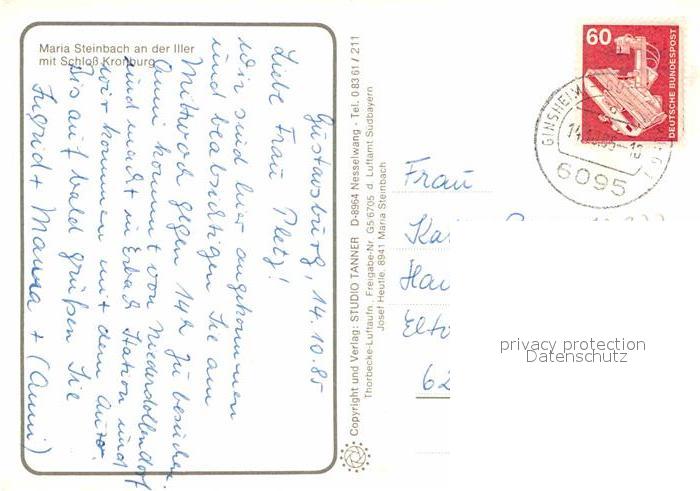 Maria Steinbach an der Iller
mit Schloß Kronburg
Gustavsburg, 14.10.85
Liebe Frau Pletz!
Wir sind hier angekommen
und beabsichtigen Sie am
Mittwoch gegen 14h zu besuchen.
Anni kommt von Niederdollendorf
und macht in Erbach Station und
wir kommen mit dem Auto.
Bis auf bald grüßen Sie
Ingrid + Manna + (Anni)
Copyright und Verlag: STUDIO TANNER D-8964 Nesselwang · Tel. 0 83 61 / 211
Thorbecke-Luftaufn., Freigabe-Nr. G5/6705 d. Luftamt Südbayern
Josef Heutle, 8941 Maria Steinbach
60
DEUTSCHE BUNDESPOST
GINSHEIM
6095
Frau
Ka
Hau
Elto
62
privacy protection
Datenschutz